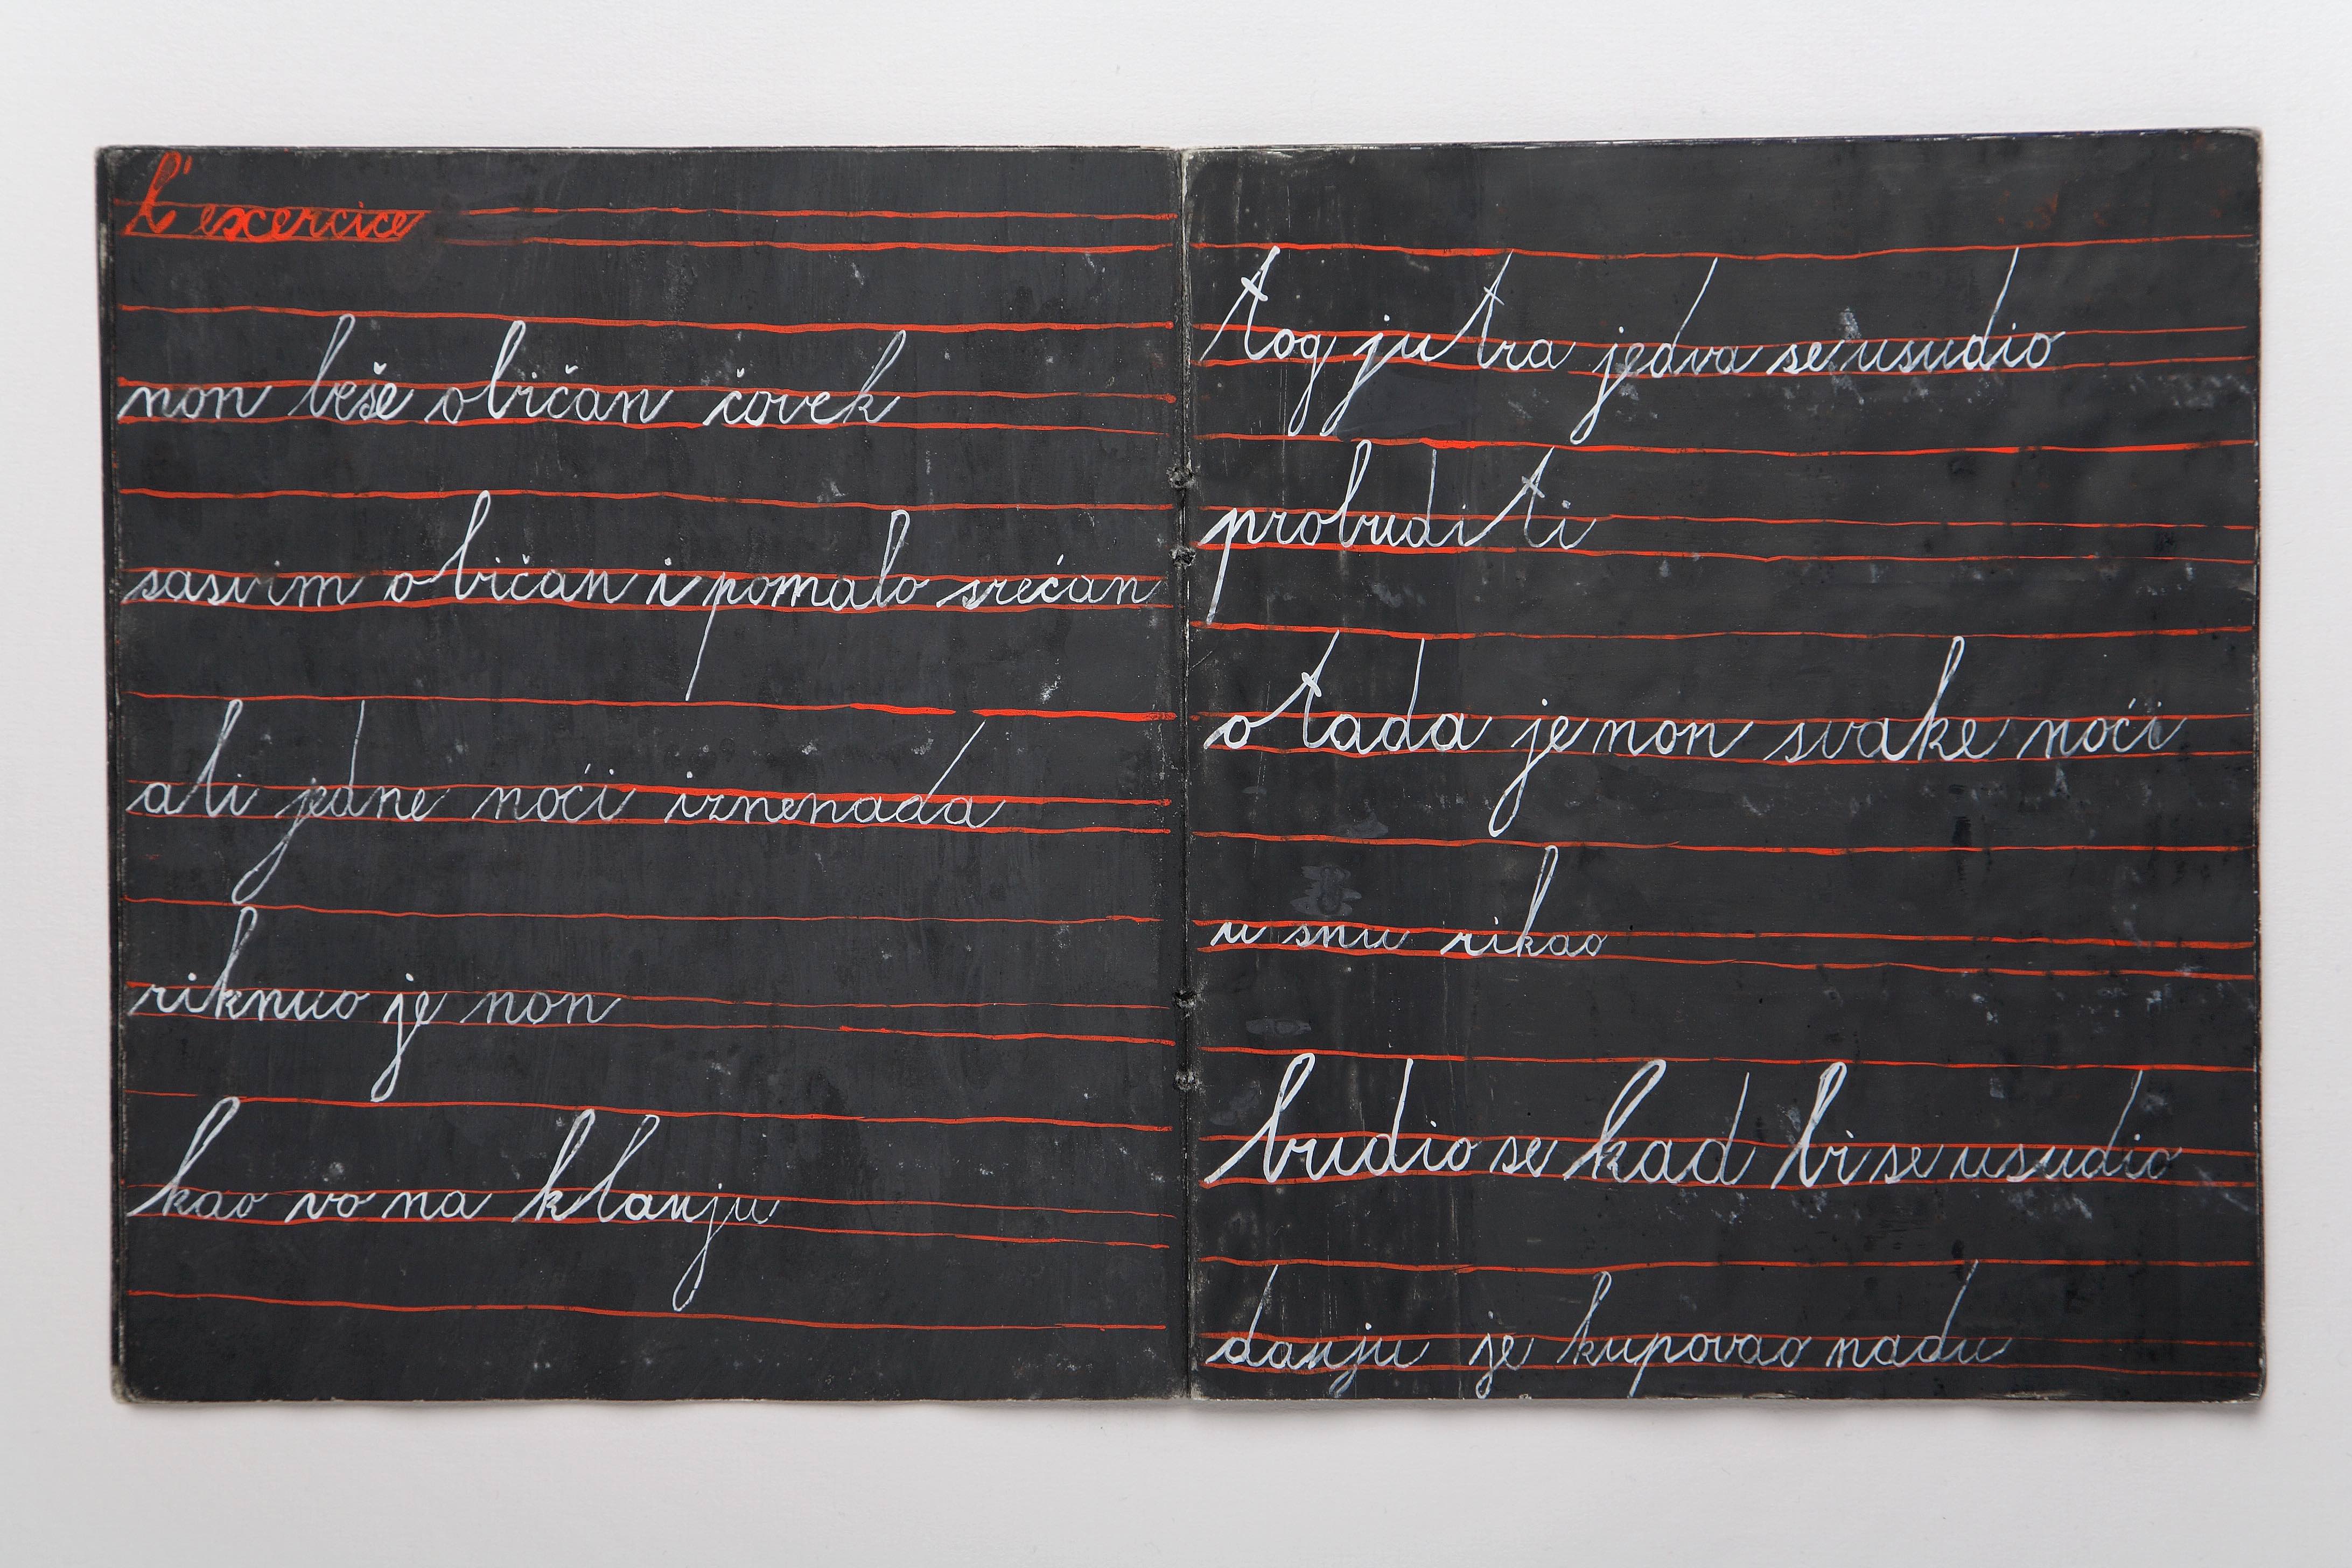 l'excercice
non beše običan čovek
sasvim običan i pomalo srećan
ali jedne noći iznenada
riknuo je non
kao vo na klanju
tog jutra jedva se usudio
probuditi
otada je non svake noći
u snu rikao
budio se kad bi se usudio
danju je kupovao nadu